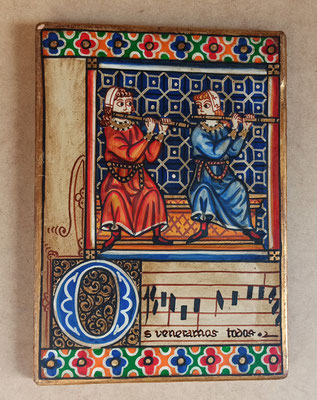 O
s veneramos todos